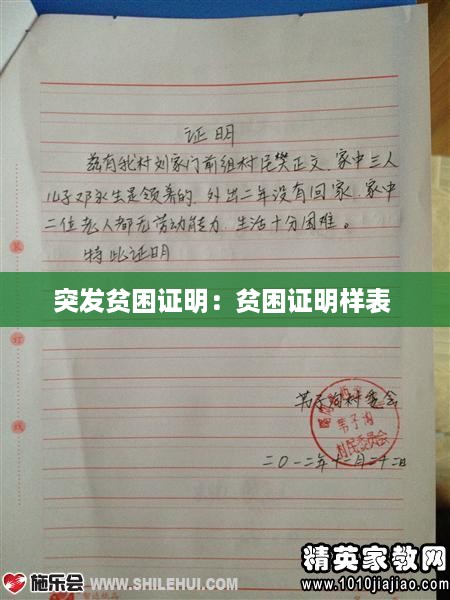 证明
兹有我村刘家门前组村民樊正文，家中三人
儿子邓永生是领养的，外出二年没有回家，家中
二位老人都无劳动能力，生活十分困难。
特此证明
突发贫困证明：贫困证明样表
装
订
线
苇子沟村委会
苇子沟
村民委员会
二〇一二年十一月二十二日
施乐会 WWW.SHILEHUI.COM
精英家教网
www.1010jiajiao.com